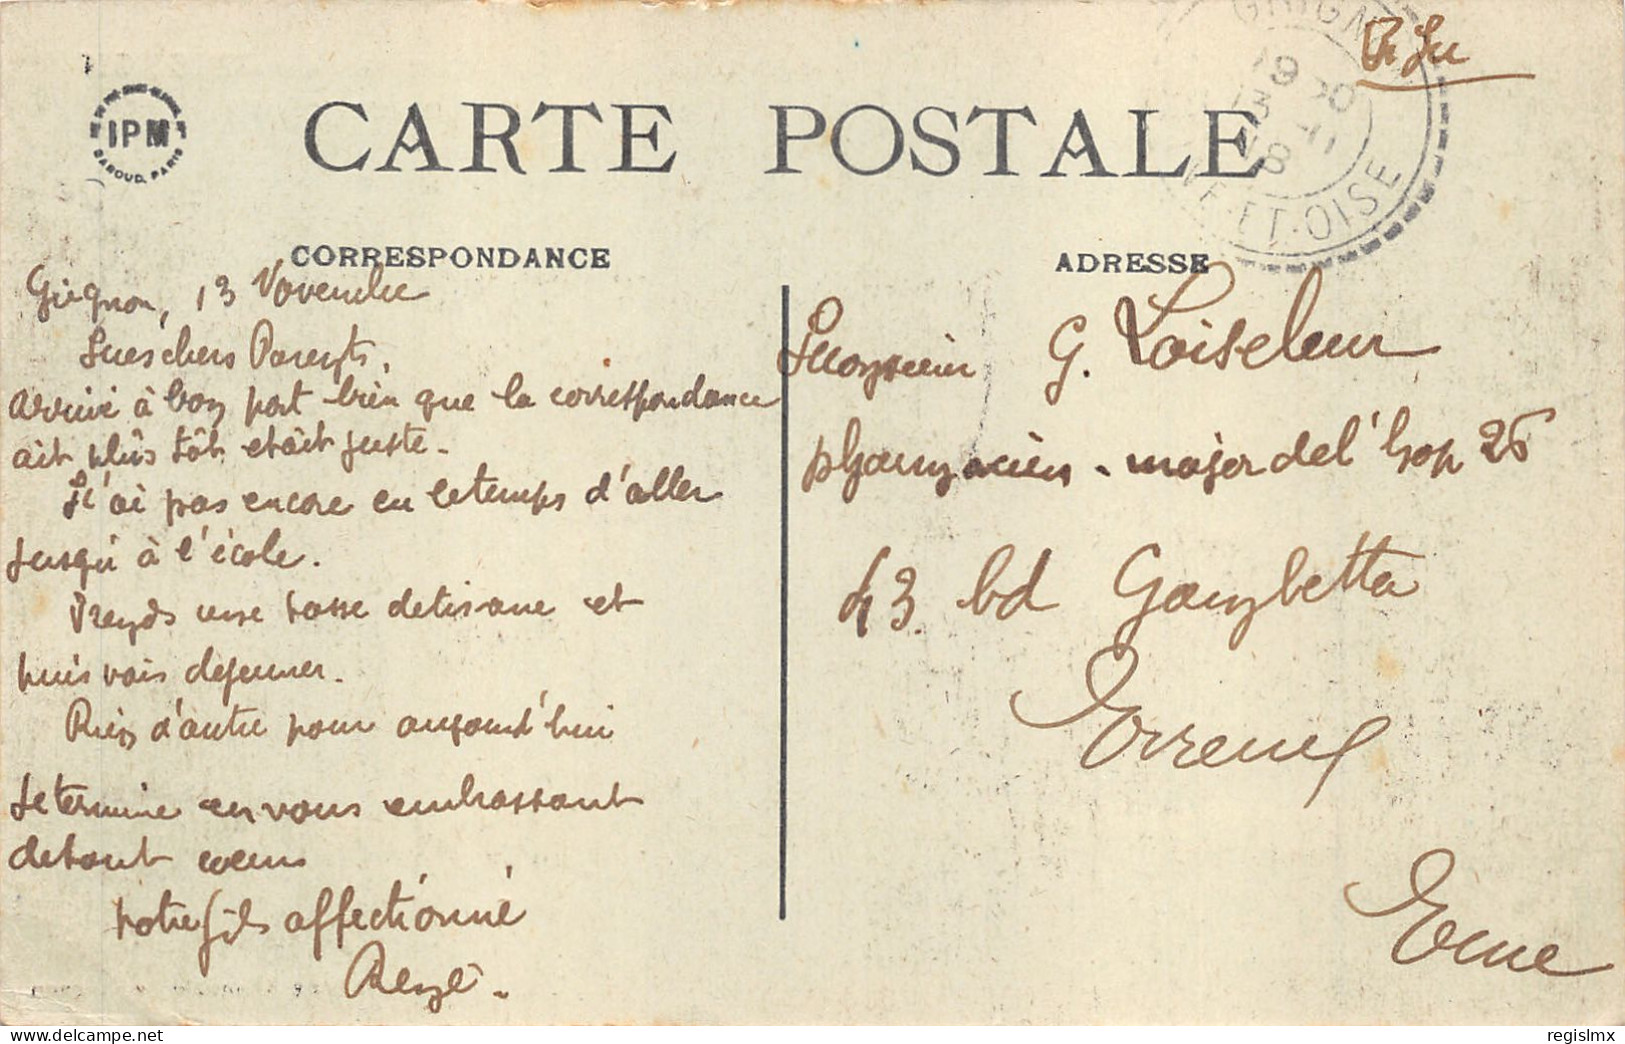 IPM
BABOUD. PARIS
CARTE POSTALE
GRIGN
19 30
13 11
18
ET-OISE
CORRESPONDANCE
ADRESSE
Grignon, 13 Novembre
chers Parents,
Arrivé à bon port bien que la correspondance
ait plus tôt etait juste.
J'ai pas encore eu le temps d'aller
jusqu'à l'école.
Prends une tasse de tisane et
puis vais dejeuner.
Rien d'autre pour aujourd'hui
Je termine en vous embrassant
de tout coeur
Votre fils affectionné
René.
Monsieur G. Loiseleur
pharmacien-major de l'hop 26
43 bd Gambetta
Evreux
Eure
delcampe.net
regislmx